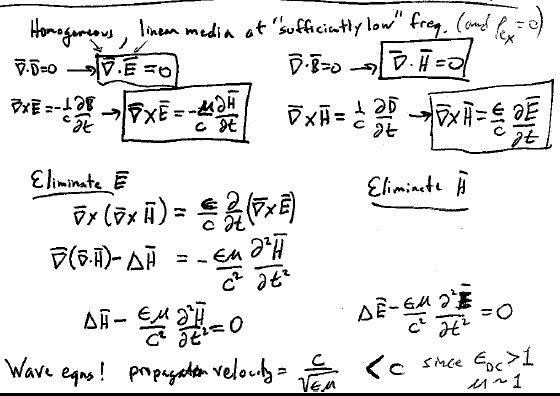 Homogeneous, linear media at "sufficiently low" freq. (and ρ_ex = 0)
∇̄·D̄=0 → ∇̄·Ē=0
∇̄·B̄=0 → ∇̄·H̄=0
∇̄×Ē = -1/c ∂B̄/∂t → ∇̄×Ē = -μ/c ∂H̄/∂t
∇̄×H̄ = 1/c ∂D̄/∂t → ∇̄×H̄ = ε/c ∂Ē/∂t
Eliminate Ē
∇̄×(∇̄×H̄) = ε/c ∂/∂t (∇̄×Ē)
∇̄(∇̄·H̄) - ΔH̄ = - εμ/c² ∂²H̄/∂t²
ΔH̄ - εμ/c² ∂²H̄/∂t² = 0
Eliminate H̄
ΔĒ - εμ/c² ∂²Ē/∂t² = 0
Wave eqns! propagation velocity = c/√εμ < c since ε_DC > 1
μ ~ 1